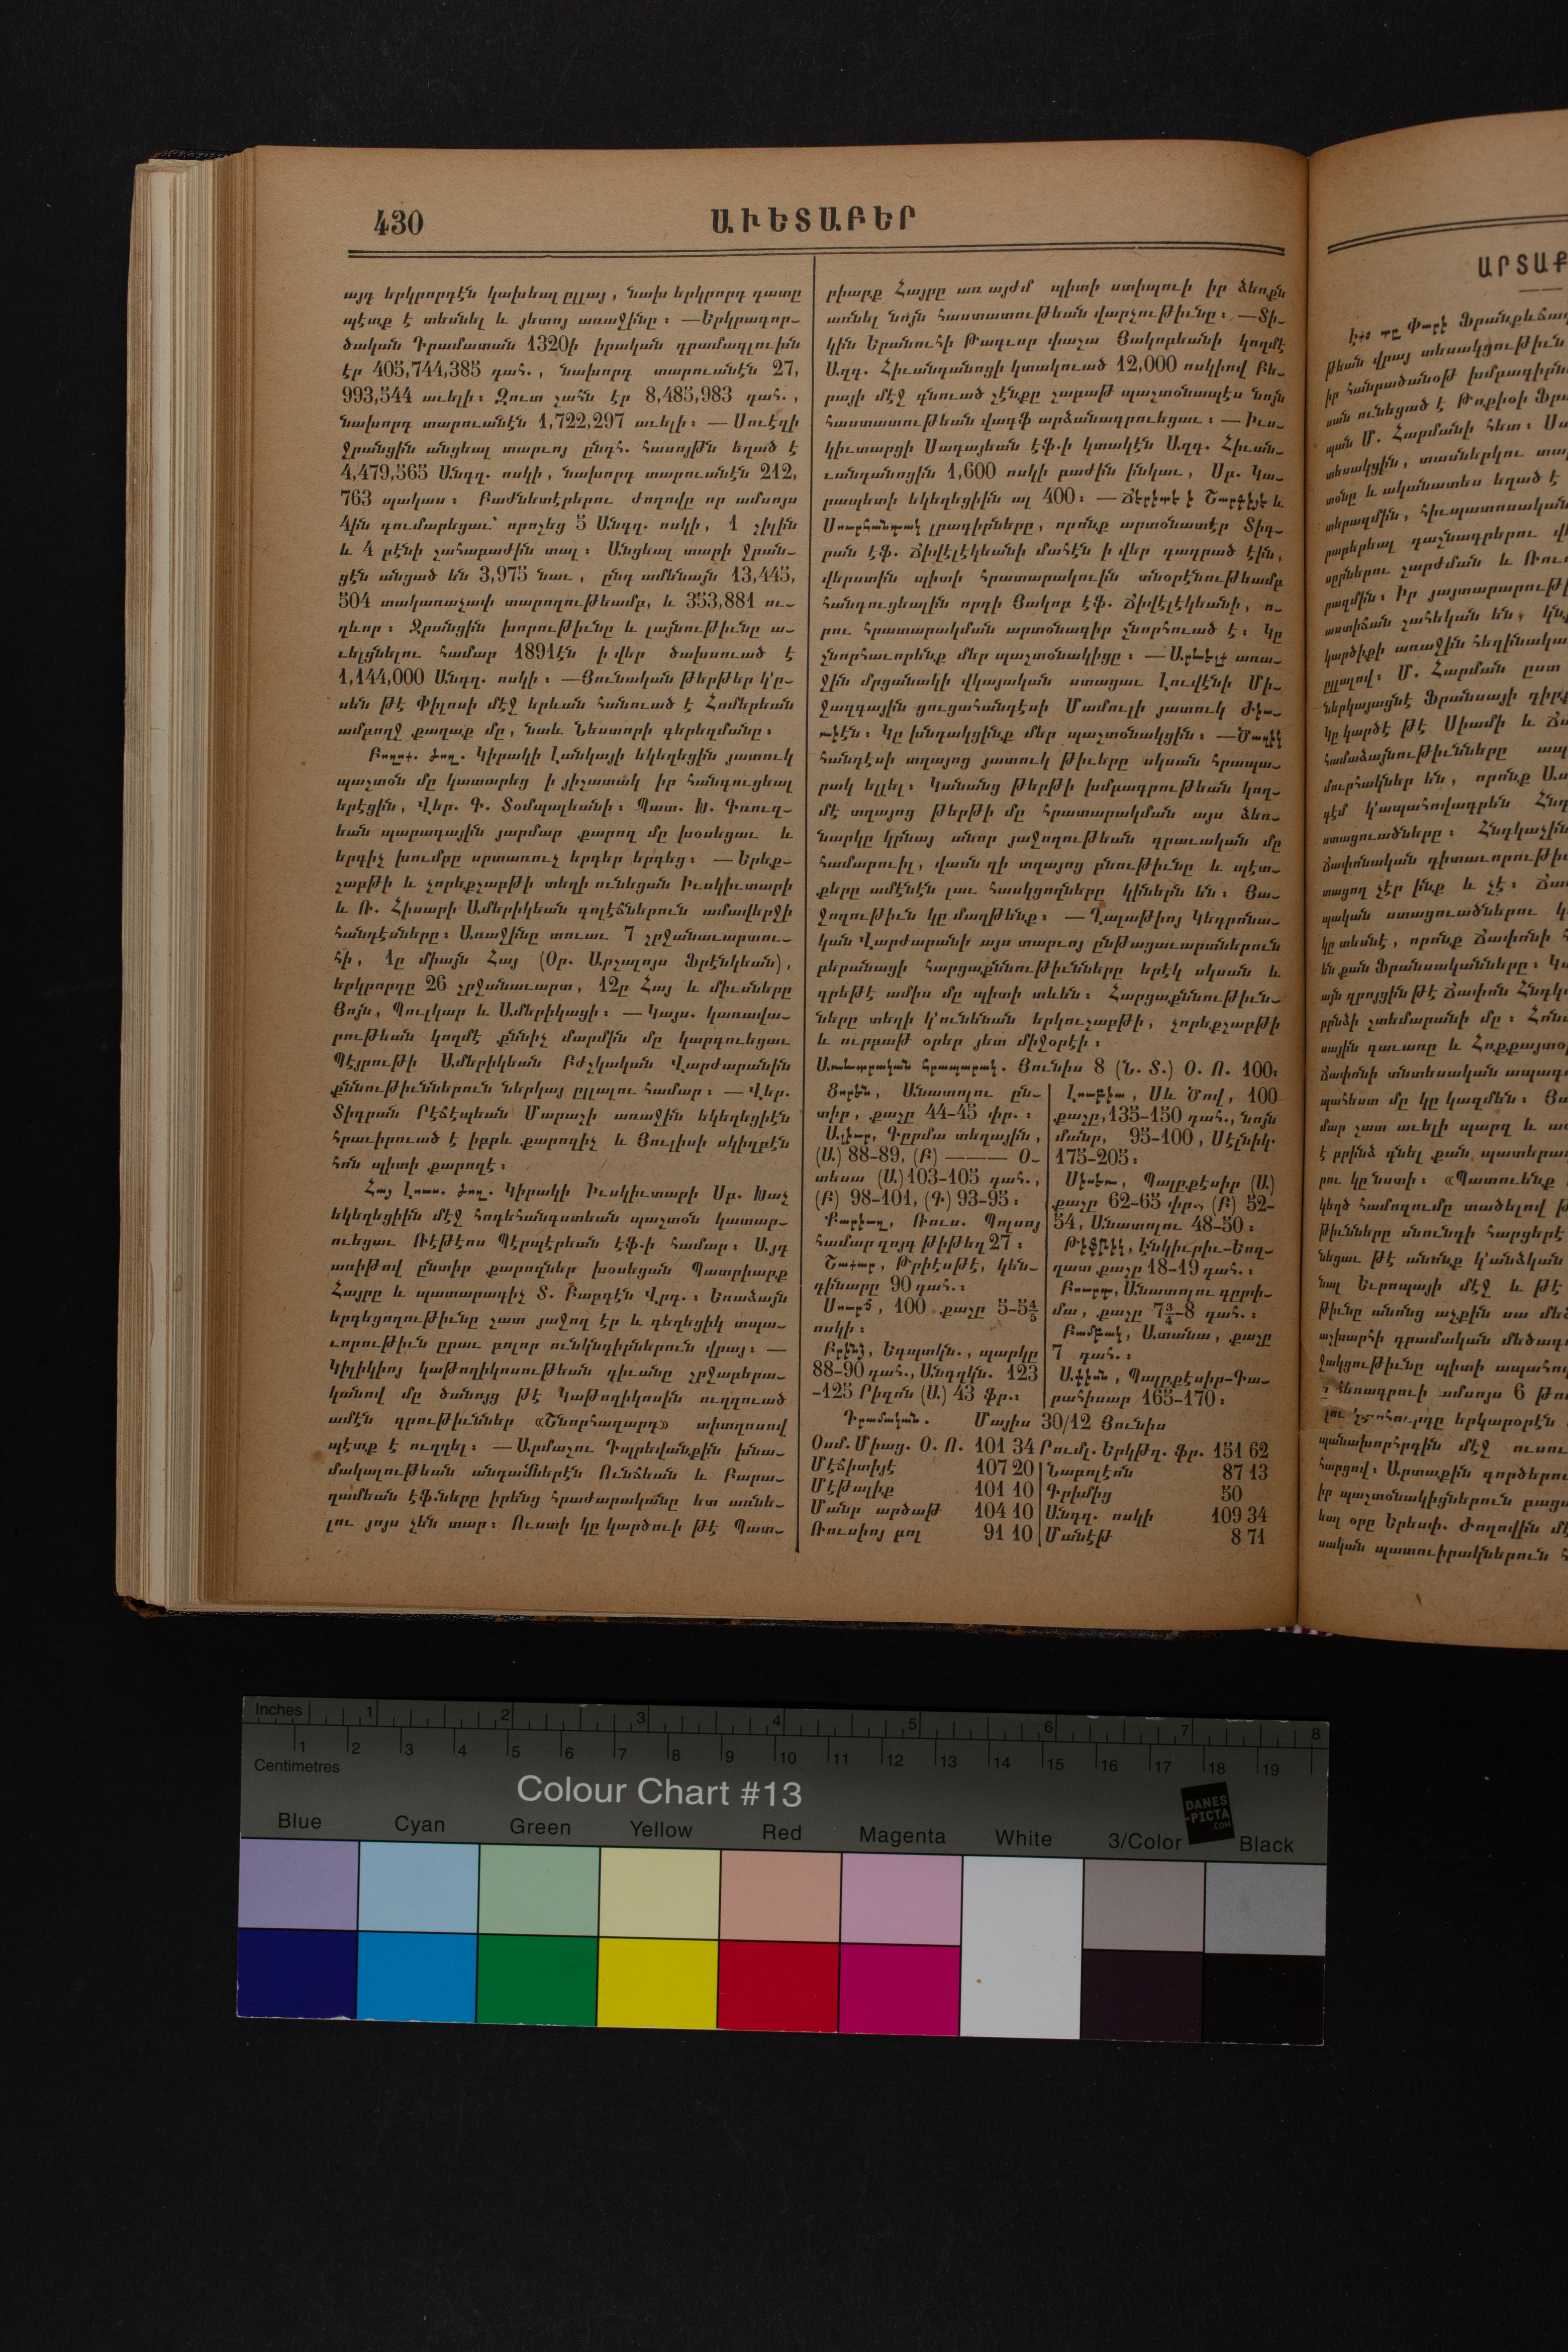 430
ԱՒԵՏԱԲԵՐ
այդ երկրորդէն կախեալ ըլլայ, նախ երկրորդ դատը
պէտք է տեսնել և յետոյ առաջինը։ —Երկրագոր-
ծական Դրամատան 1320ի իրական դրամագլուխն
էր 405,744,385 դահ., նախորդ տարուանէն 27,
993,544 աւելի։ Զուտ շահն էր 8,485,983 դահ.,
նախորդ տարուանէն 1,722,297 աւելի։ — Սուէզի
ջրանցին անցեալ տարւոյ ընդհ. հասոյթն եղած է
4,479,565 Անգղ. ոսկի, նախորդ տարուանէն 212,
763 պակաս։ Բաժնետէրերու ժողովը որ ամսոյս
4ին գումարեցաւ՝ որոշեց 5 Անգղ. ոսկի, 1 շիլին
և 4 բէնի շահաբաժին տալ։ Անցեալ տարի ջրան-
ցէն անցած են 3,975 նաւ, ընդ ամենայն 13,445,
504 տակառաչափ տարողութեամբ, և 353,881 ու-
ղևոր։ Ջրանցին խորութիւնը և լայնութիւնը ա-
ւելցնելու համար 1891էն ի վեր ծախսուած է
1,144,000 Անգղ. ոսկի։ —Յունական թերթեր կ՚ը-
սեն թէ Փիլոսի մէջ երևան հանուած է Հոմերեան
ամբողջ քաղաք մը, նաև Նեստորի գերեզմանը։
Բողոք. ժող. Կիրակի Լանկայի եկեղեցին յատուկ
պաշտօն մը կատարեց ի յիշատակ իր հանգուցեալ
երէցին, Վեր. Գ. Տօմպալեանի։ Պատ. Խ. Գոուզ-
եան պարագային յարմար քարոզ մը խօսեցաւ և
երգիչ խումբը սրտառուչ երգեր երգեց։ — Երեք-
շաբթի և չորեքշաբթի տեղի ունեցան Իւսկիւտարի
և Ռ. Հիսարի Ամերիկեան գոլէճներուն ամավերջի
հանդէսները։ Առաջինը տուաւ 7 շրջանաւարտու-
հի, 1ը միայն Հայ (Օր. Արշալոյս Ֆրէնկեան),
երկրորդը 26 շրջանաւարտ, 12ը Հայ և միւսները
Յոյն, Պուլկար և Ամերիկացի։ — Կայս. կառավա-
րութեան կողմէ քննիչ մարմին մը կարգուեցաւ
Պէյրութի Ամերիկեան Բժշկական Վարժարանին
քննութիւններուն ներկայ ըլլալու համար։ —Վեր.
Տիգրան Րէճէպեան Մարաշի առաջին եկեղեցիէն
հրաւիրուած է իբրև քարոզիչ և Յուլիսի սկիզբէն
հոն պիտի քարոզէ։
Հայ Լուս. ժող. Կիրակի Իւսկիւտարի Սբ. Խաչ
եկեղեցիին մէջ հոգեհանգստեան պաշտօն կատար-
ուեցաւ Ռէթէոս Պէրպէրեան էֆ.ի համար։ Այդ
առիթով ընտիր քարոզներ խօսեցան Պատրիարք
Հայրը և պատարագիչ Տ. Բարգէն Վրդ.։ Եռաձայն
երգեցողութիւնը շատ յաջող էր և գեղեցիկ տպա-
ւորութիւն ըրաւ բոլոր ունկնդիրներուն վրայ։ —
Կիլիկիոյ կաթողիկոսութեան դիւանը շրջաբերա-
կանով մը ծանոյց թէ Կաթողիկոսին ուղղուած
ամէն գրութիւններ «Շնորհազարդ» տիտղոսով
պէտք է ուղղել։ —Արմաշու Դպրեվանքին խնա-
մակալութեան անդամներէն Ունճեան և Բարա-
ղամեան էֆ.ները իրենց հրաժարականը ետ առնե-
լու յոյս չեն տար։ Ուստի կը կարծուի թէ Պատ-
րիարք Հայրը առ այժմ պիտի ստիպուի իր ձեռքն
առնել նոյն հաստատութեան վարչութիւնը։ —Տի-
կին Երանուհի Թագւոր փաշա Յակոբեանի կողմէ
Ազգ. Հիւանդանոցի կտակուած 12,000 ոսկիով Բե-
րայի մէջ գնուած շէնքը շաբաթ պաշտօնապէս նոյն
հաստատութեան վագֆ արձանագրուեցաւ։ — Իւս-
կիւտարցի Սադայեան էֆ.ի կտակէն Ազգ. Հիւան-
ւանդանոցին 1,600 ոսկի բաժին ինկաւ, Սբ. Կա-
րապետի եկեղեցիին ալ 400։ — Ճէրիտէ ի Շարգիյէ և
Սուրհանդակ լրագիրները, որոնք արտօնատէր Տիգ-
րան էֆ. Ճիվէլէկեանի մահէն ի վեր դադրած էին,
վերստին պիտի հրատարակուին տնօրէնութեամբ
հանգուցեալին որդի Յակոբ էֆ. Ճիվէլէկեանի, ո-
րու հրատարակման արտօնագիր շնորհուած է։ Կը
շնորհաւորենք մեր պաշտօնակիցը։ —Արևելք առա-
ջին մրցանակի վկայական ստացաւ Լուվէնի Մի-
ջազգային ցուցահանդէսի Մամուլի յատուկ Ժիւ-
րիէն։ Կը խնդակցինք մեր պաշտօնակցին։ —Ծաղիկ
հանդէսի տղայոց յատուկ թիւերը սկսան հրապա-
րակ ելլել։ Կանանց թերթի խմբագրութեան կող-
մէ տղայոց թերթի մը հրատարակման այս ձեռ-
նարկը կրնայ անոր յաջողութեան գրաւական մը
համարուիլ, վասն զի տղայոց բնութիւնը և պէտ-
քերը ամէնէն լաւ հասկցողները կիներն են։ Յա-
ջողութիւն կը մաղթենք։ — Ղալաթիոյ Կեդրոնա-
կան Վարժարանի այս տարւոյ ընթացաւարտներուն
բերանացի հարցաքննութիւնները երէկ սկսան և
գրեթէ ամիս մը պիտի տևեն։ Հարցաքննութիւն-
ները տեղի կ՚ունենան երկուշաբթի, չորեքշաբթի
և ուրբաթ օրեր յետ միջօրէի։
Առևտրական հրապարակ. Յունիս 8 (Ն. Տ.) Օ. Ո. 100։
Ցորեն, Անատոլու ըն-
տիր, քաշը 44-45 փր.։
Ալիւր, Գըրմա տեղային,
(Ա.) 88-89, (Բ) ——— Օ-
տեսա (Ա.) 103-105 դահ.,
(Բ) 98-101, (Գ.) 93-95։
Քարիւղ, Ռուս. Պոլսոյ
համար զոյգ թիթեղ 27։
Շաքար, Թրիէսթէ, կեն-
դինարը 90 դահ.։
Սուրճ, 100 քաշը 5-5⅘
ոսկի։
Բրինձ, Եգպտկն., պարկը
88-90 դահ., Անգղկն. 123
-125 Րիզոն (Ա.) 43 ֆր.։
Լուբիա, Սև Ծով, 100
քաշը, 135-150 դահ., նոյն
մանր, 95-100, Սէլնիկ.
175-205։
Սիսեռ, Պալըքէսիր (Ա.)
քաշը 62-65 փր., (Բ) 52-
54, Անատոլու 48-50։
Թիֆթիկ, Էնկիւրիւ-Եոզ-
ղատ քաշը 18-19 դահ.։
Բուրդ, Անատոլու գըրփ-
մա, քաշը 7¾-8 դահ.։
Բամբակ, Ատանա, քաշը
7 դահ.։
Ափիոն, Պալըքէսիր-Գա-
րահիսար 165-170։
Դրամական. Մայիս 30/12 Յունիս
Օսմ. Միաց. Օ. Ո. 101 34
Մէճիտիյէ 107 20
Մէթալիք 101 10
Մանր արծաթ 104 10
Ռուսիոյ բոլ 91 10
Րումլ. Երկթղ. ֆր. 151 62
Նաբոլէոն 87 13
Գրիմից 50
Անգղ. ոսկի 109 34
Մանէթ 8 71
ԱՐՏԱՔ
թեան վրայ տեսակցութիւն
սան ունեցած է Թոքիօի Ֆրա
պան Մ. Հարմանի հետ։
տեսակցին, տասներկու
տօնը և ականատես եղած է
տերազմին, հիւպատոսական
րաբերեալ դաշնագրերու
սըրներու շարժման և Ռուս
րազմին։ Իր յայտարարութի
աստիճան շահեկան են, կնք
կարծիքի առաջին հեղինակա
ըլլալով։ Մ. Հարման ըստ
ներկայացնէ Ֆրանսայի դիրք
կը կարծէ թէ Սիամի և
համաձայնութիւնները
մուրհակներ են, որոնք
դէմ կ՚ապահովագրեն Հնդ
ստացուածները։ Հնդկաչին
Ճափոնական դիտաւորութիւ
տացող չէր ինք և չէ։
պական ստացուածներու
կը տեսնէ, որոնք Ճափոնի
են քան Ֆրանսականները։
այն գրոյցին թէ Ճափոն Հնդկ
բրնձի շտեմարանի մը։
սային դաւառը և Հոքքայտօ
Ճափոնի տնտեսական ապագ
պահեստ մը կը կազմեն։
մար շատ աւելի պարզ և
է բրինձ գնել քան պատերազ
րու կը նստի։ «Պատուենք
կեղծ համոզումը տածելով
թիւնները սնունդի հարցերէ
նեցաւ թէ անոնք կ՚անձկան
նալ Եւրոպայի մէջ և թէ
թիւնը անոնց աչքին սա մեծ
աշխարհի դրամական մեծագ
ջակցութիւնը պիտի ապահով
հեռագրուի ամսոյս 6
երկարօրէն
պանախորհրդին մէջ ուսու
հարցով։ Արտաքին գործերու
իր պաշտօնակիցներուն բացա
եալ օրը Երեսփ. Ժողովին
սական պատուիրակներուն
Inches 1 2 3 4 5 6 7 8
1 2 3 4 5 6 7 8 9 10 11 12 13 14 15 16 17 18 19
Centimetres
Colour Chart #13
DANES
-PICTA
.COM
Blue Cyan Green Yellow Red Magenta White 3/Color Black